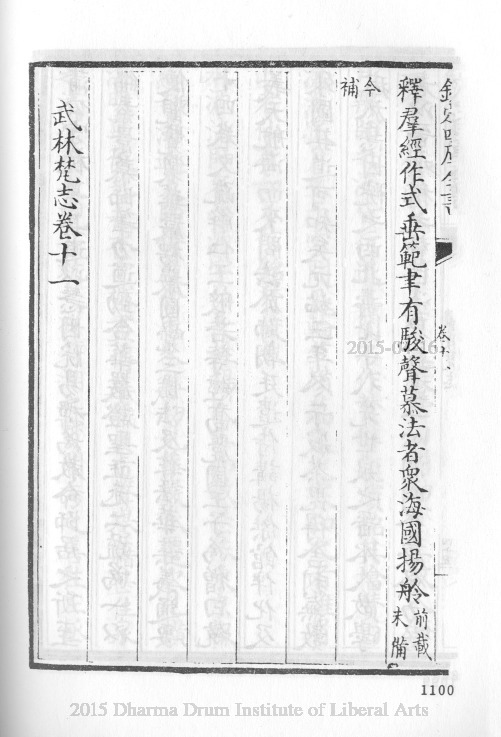 欽定四庫全書
卷十一
釋羣經作式垂範聿有駿聲慕法者衆海國揚舲前載未備
今補
武林梵志卷十一
1100
2015 Dharma Drum Institute of Liberal Arts